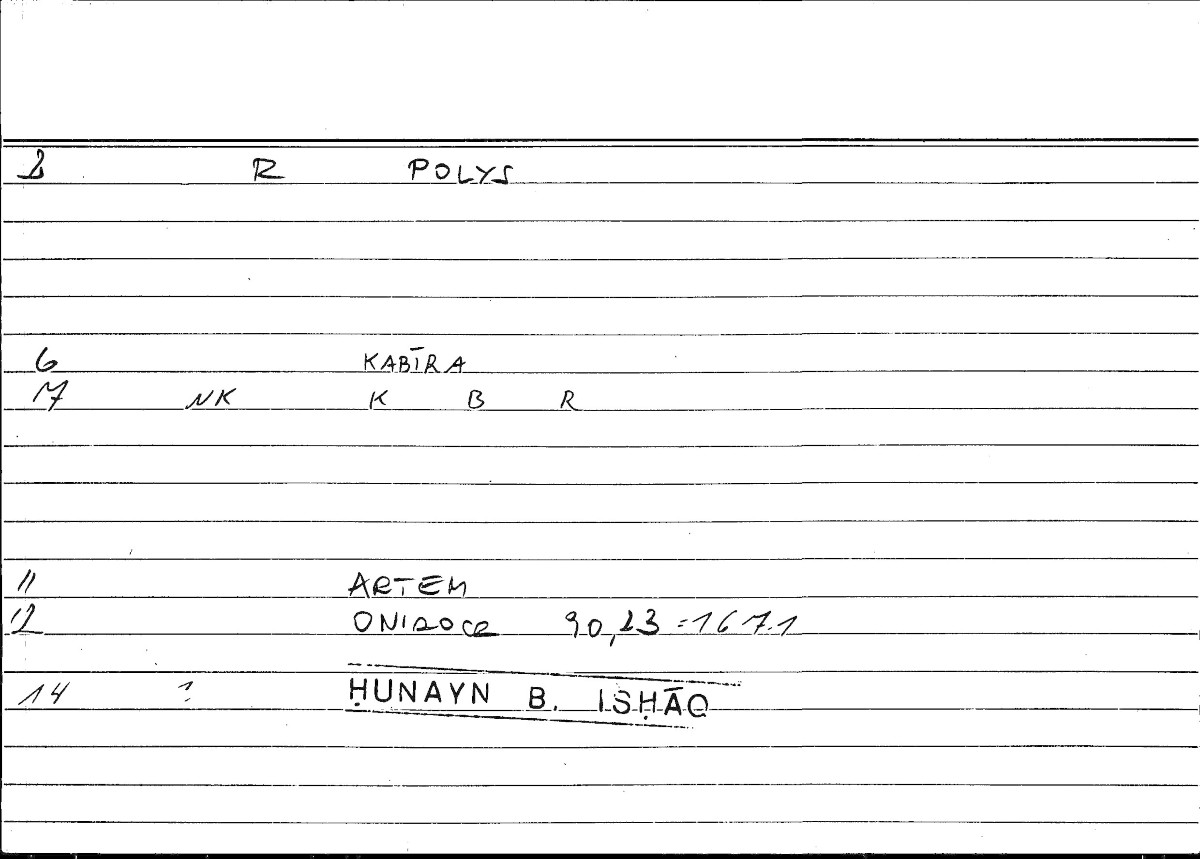 2 R POLYS
6 KABĪRA
17 NK K B R
11 ARTEM
12 ONIROCR 90,23 = 167.1
14 ? ḤUNAYN B. ISḤĀQ